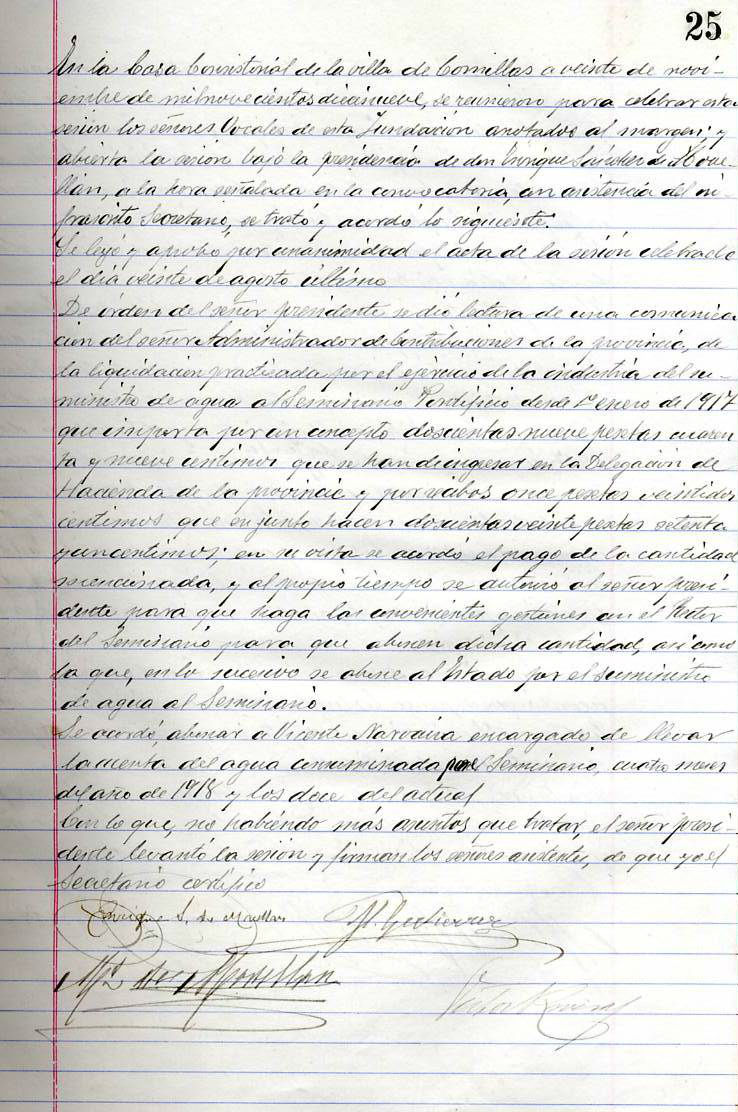 25
En la Casa Consistorial de la villa de Comillas a veinte de novi-
embre de mil novecientos diecinueve, se reunieron para celebrar esta
sesión los señores Vocales de esta Fundación anotados al margen; y
abierta la sesión bajo la presidencia de don Enrique Sánchez de Move-
llán, a la hora señalada en la convocatoria, con asistencia del in-
frascrito Secretario, se trató y acordó lo siguiente:
Se leyó y aprobó por unanimidad el acta de la sesión celebrada
el día veinte de agosto último
De órden del señor presidente se dió lectura de una comunica
cion del señor Administrador de Contribuciones de la provincia, de
la liquidacion practicada por el ejercicio de la industria del su-
ministro de agua al Seminario Pontificio desde 1º enero de 1917
que importa por un concepto doscientas nueve pesetas cuaren
ta y nueve centimos que se han de ingresar en la Delegacion de
Hacienda de la provincia y por recibos once pesetas veintidos
centimos que en junto hacen doscientas veinte pesetas setenta
y un centimos; en su vista se acordó el pago de la cantidad
mencionada, y al propio tiempo se autorizó al señor presi-
dente para que haga las convenientes gestiones con el Rector
del Seminario para que abonen dicha cantidad, asi como
la que, en lo sucesivo se abone al Estado por el suministro
de agua al Seminario.
Se acordó abonar a Vicente Narvaiza encargado de llevar
la cuenta del agua consuminada por el Seminario, cuatro meses
del año de 1918 y los doce del actual
Con lo que, no habiendo más asuntos que tratar, el señor presi-
dente levantó la sesión y firman los señores asistentes, de que yo el
Secretario certifico
Enrique S. de Movellan
M. Gutierrez
de Movellan
Victor